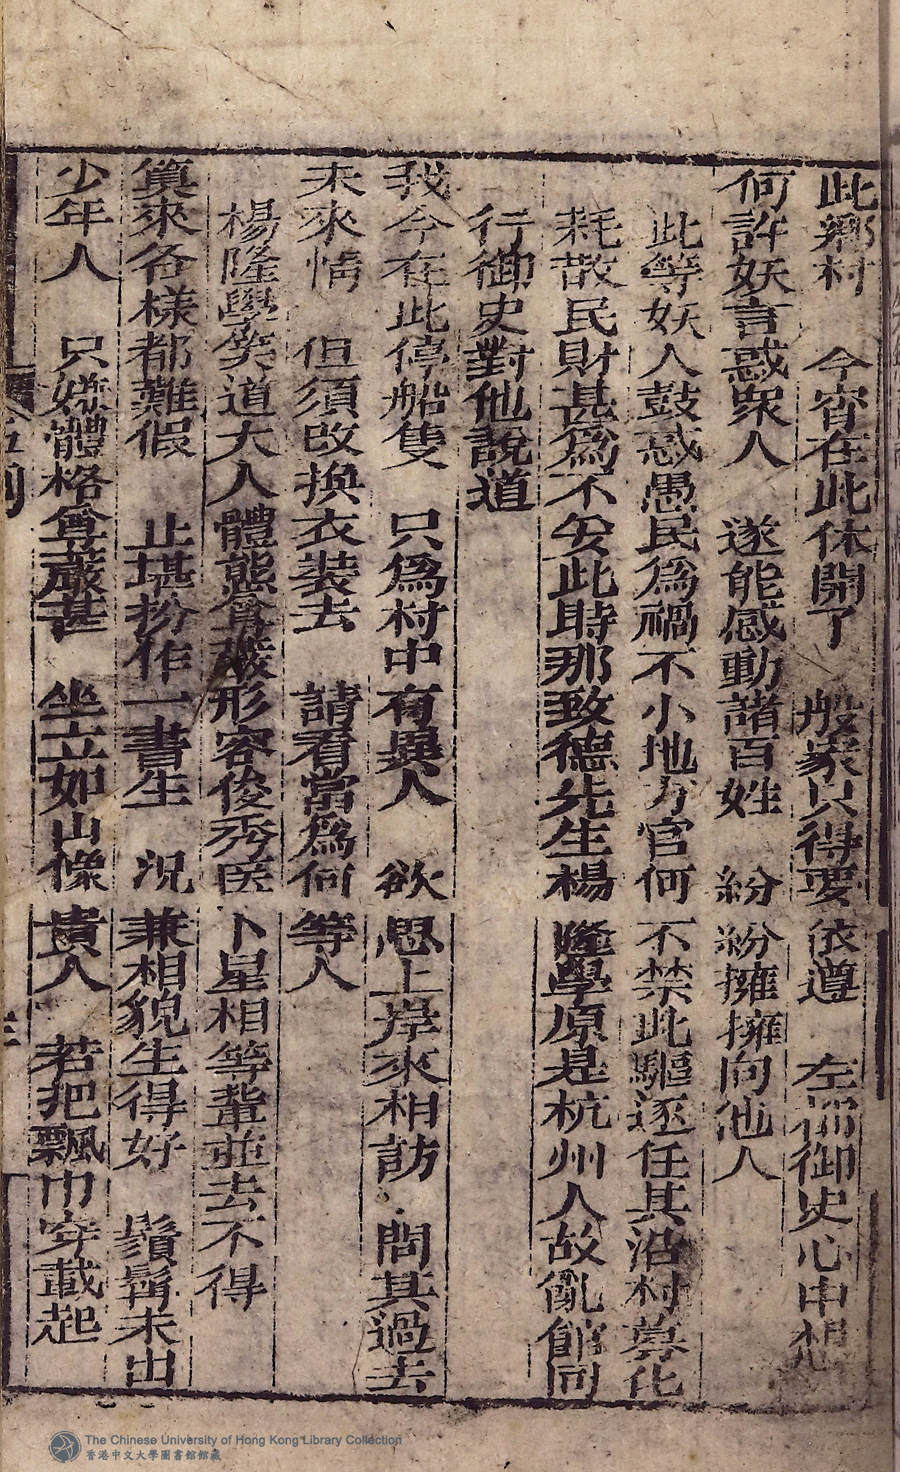 此鄉村　今宵在此休開了　般家只得要依遵　左都御史心中想
何許妖言惑眾人　遂能感動諸百姓　紛紛擁擁向他人
此等妖人鼓惑愚民為禍不小地方官何不禁此驅逐任其沿村募化
耗散民財甚為不安此時那致德先生楊隆學原是杭州人故亂館同
行御史對他說道
我今在此停船隻　只為村中有異人　欲思上岸來相訪　問其過去
未來情　但須改換衣裝去　請看當為何等人
楊隆學笑道大人體態尊嚴形容俊秀医卜星相等輩並去不得
算來各樣都難假　止堪扮作一書生　況兼相貌生得好　鬚髯未出
少年人　只嫌體格尊嚴甚　坐立如山像貴人　若把飄巾穿載起
卷五
The Chinese University of Hong Kong Library Collection
香港中文大學圖書館館藏